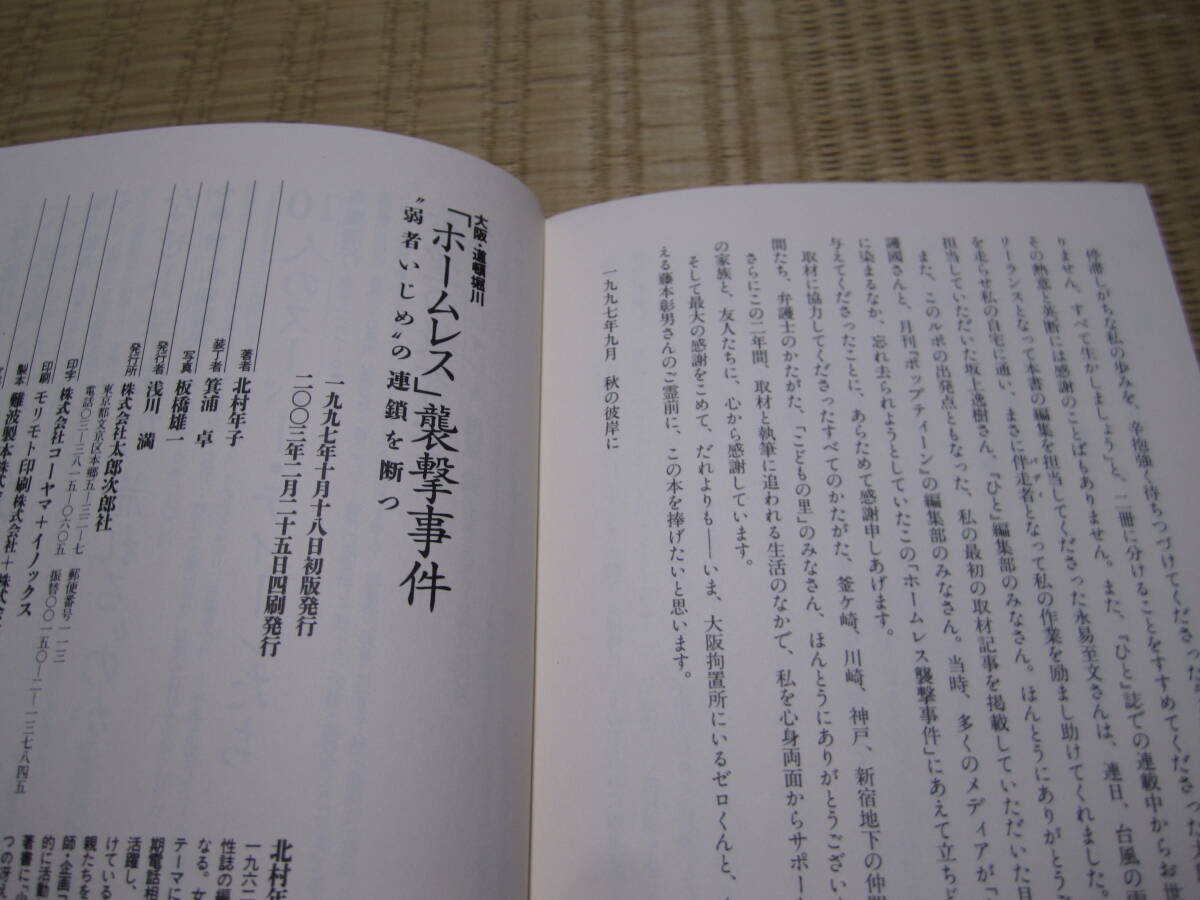 停滞しがちな私の歩みを、辛抱強く待ちつづけてくださった
りません。すべて生かしましょう」と、二冊に分けることをすすめてくださ
その熱意と英断には感謝のことばもありません。また、『ひと』誌での連載中からお世
リーランスとなって本書の編集を担当してくださった永易至文さんは、連日、台風の雨
を走らせ私の自宅に通い、まさに伴走者となって私の作業を励まし助けてくれました。
担当していただいた坂上逸樹さん、『ひと』編集部のみなさん。ほんとうにありがとうご
また、このルポの出発点ともなった、私の最初の取材記事を掲載していただいた月
護國さんと、月刊『ポップティーン』の編集部のみなさん。当時、多くのメディアが
に染まるなか、忘れ去られようとしていたこの「ホームレス襲撃事件」にあえて立ちど
与えてくださったことに、あらためて感謝申しあげます。
取材に協力してくださったすべてのかたがた、釜ケ崎、川崎、神戸、新宿地下の仲
間たち、弁護士のかたがた、「こどもの里」のみなさん、ほんとうにありがとうござい
さらにこの二年間、取材と執筆に追われる生活のなかで、私を心身両面からサポー
の家族と、友人たちに、心から感謝しています。
そして最大の感謝をこめて、だれよりも——いま、大阪拘置所にいるゼロくんと、
える藤本彰男さんのご霊前に、この本を捧げたいと思います。
一九九七年九月 秋の彼岸に
大阪・道頓堀川
「ホームレス」襲撃事件
〝弱者いじめ〟の連鎖を断つ
一九九七年十月十八日初版発行
二〇〇三年二月二十五日四刷発行
著者 北村年子
装丁者 箕浦 卓
写真 板橋雄一
発行者 浅川 満
発行所 株式会社太郎次郎社
東京都文京区本郷五―三二―七 郵便番号一一三
電話〇三―三八一五―〇六〇五 振替〇〇一五〇―二―一三七八四五
印字 株式会社コーヤマ+イノックス
印刷 モリモト印刷株式会社
製本 難波製本株式会社+株式会
北村年
一九六二
性誌の編
なる。女
テーマに
期電話相
活躍し、
けている
親たちを
師・企画
的に活動
著書に『少
つの冴え